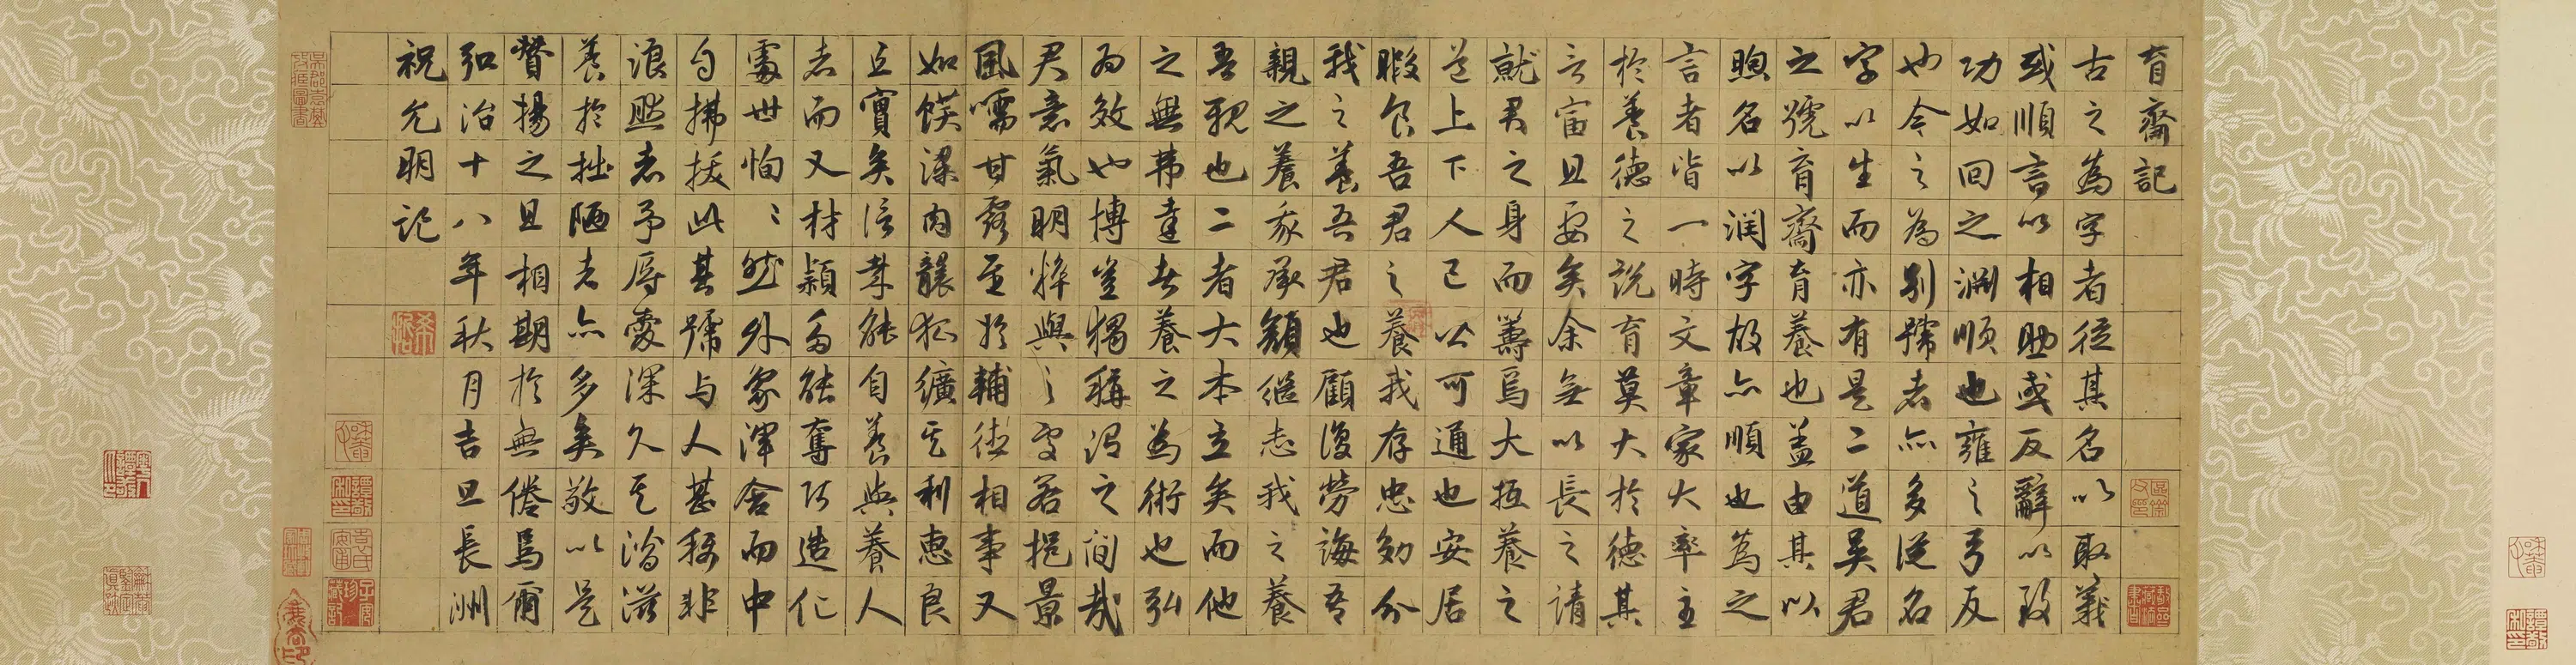 育齋記
古之為字者從其名以取義
或順言以相助或反辭以致
功如回之淵順也雍之弓反
也今之為别號者亦多從名
字以生而亦有是二道吳君
之號育齋育養也盖由其以
煦名以潤字故亦順也為之
言者皆一時文章家大率主
於養德之說育莫大於德其
言富且要矣余無以長之請
就君之身而籌焉大抵養之
道上下人己公可通也安居
暇食吾君之養我存忠効分
我之養吾君也顧復勞誨吾
親之養我承顔繼志我之養
吾親也二者大本立矣而他
之無弗達者養之為術也弘
為效也博豈獨稱謂之間哉
君意氣明粹與之處若挹景
風嚅甘露至於輔德相事又
如饌粱肉襲狐纊其利惠良
且實矣信孝能自養與養人
者而又材穎多能奪巧造化
處世恂〻然外象渾含而中
自拂拔此甚號与人甚稱非
浪然者予辱愛深久其滋
養於拙陋者亦多矣敬以是
贊揚之且相期於無倦焉爾
弘治十八年秋月吉旦長洲
祝允明記